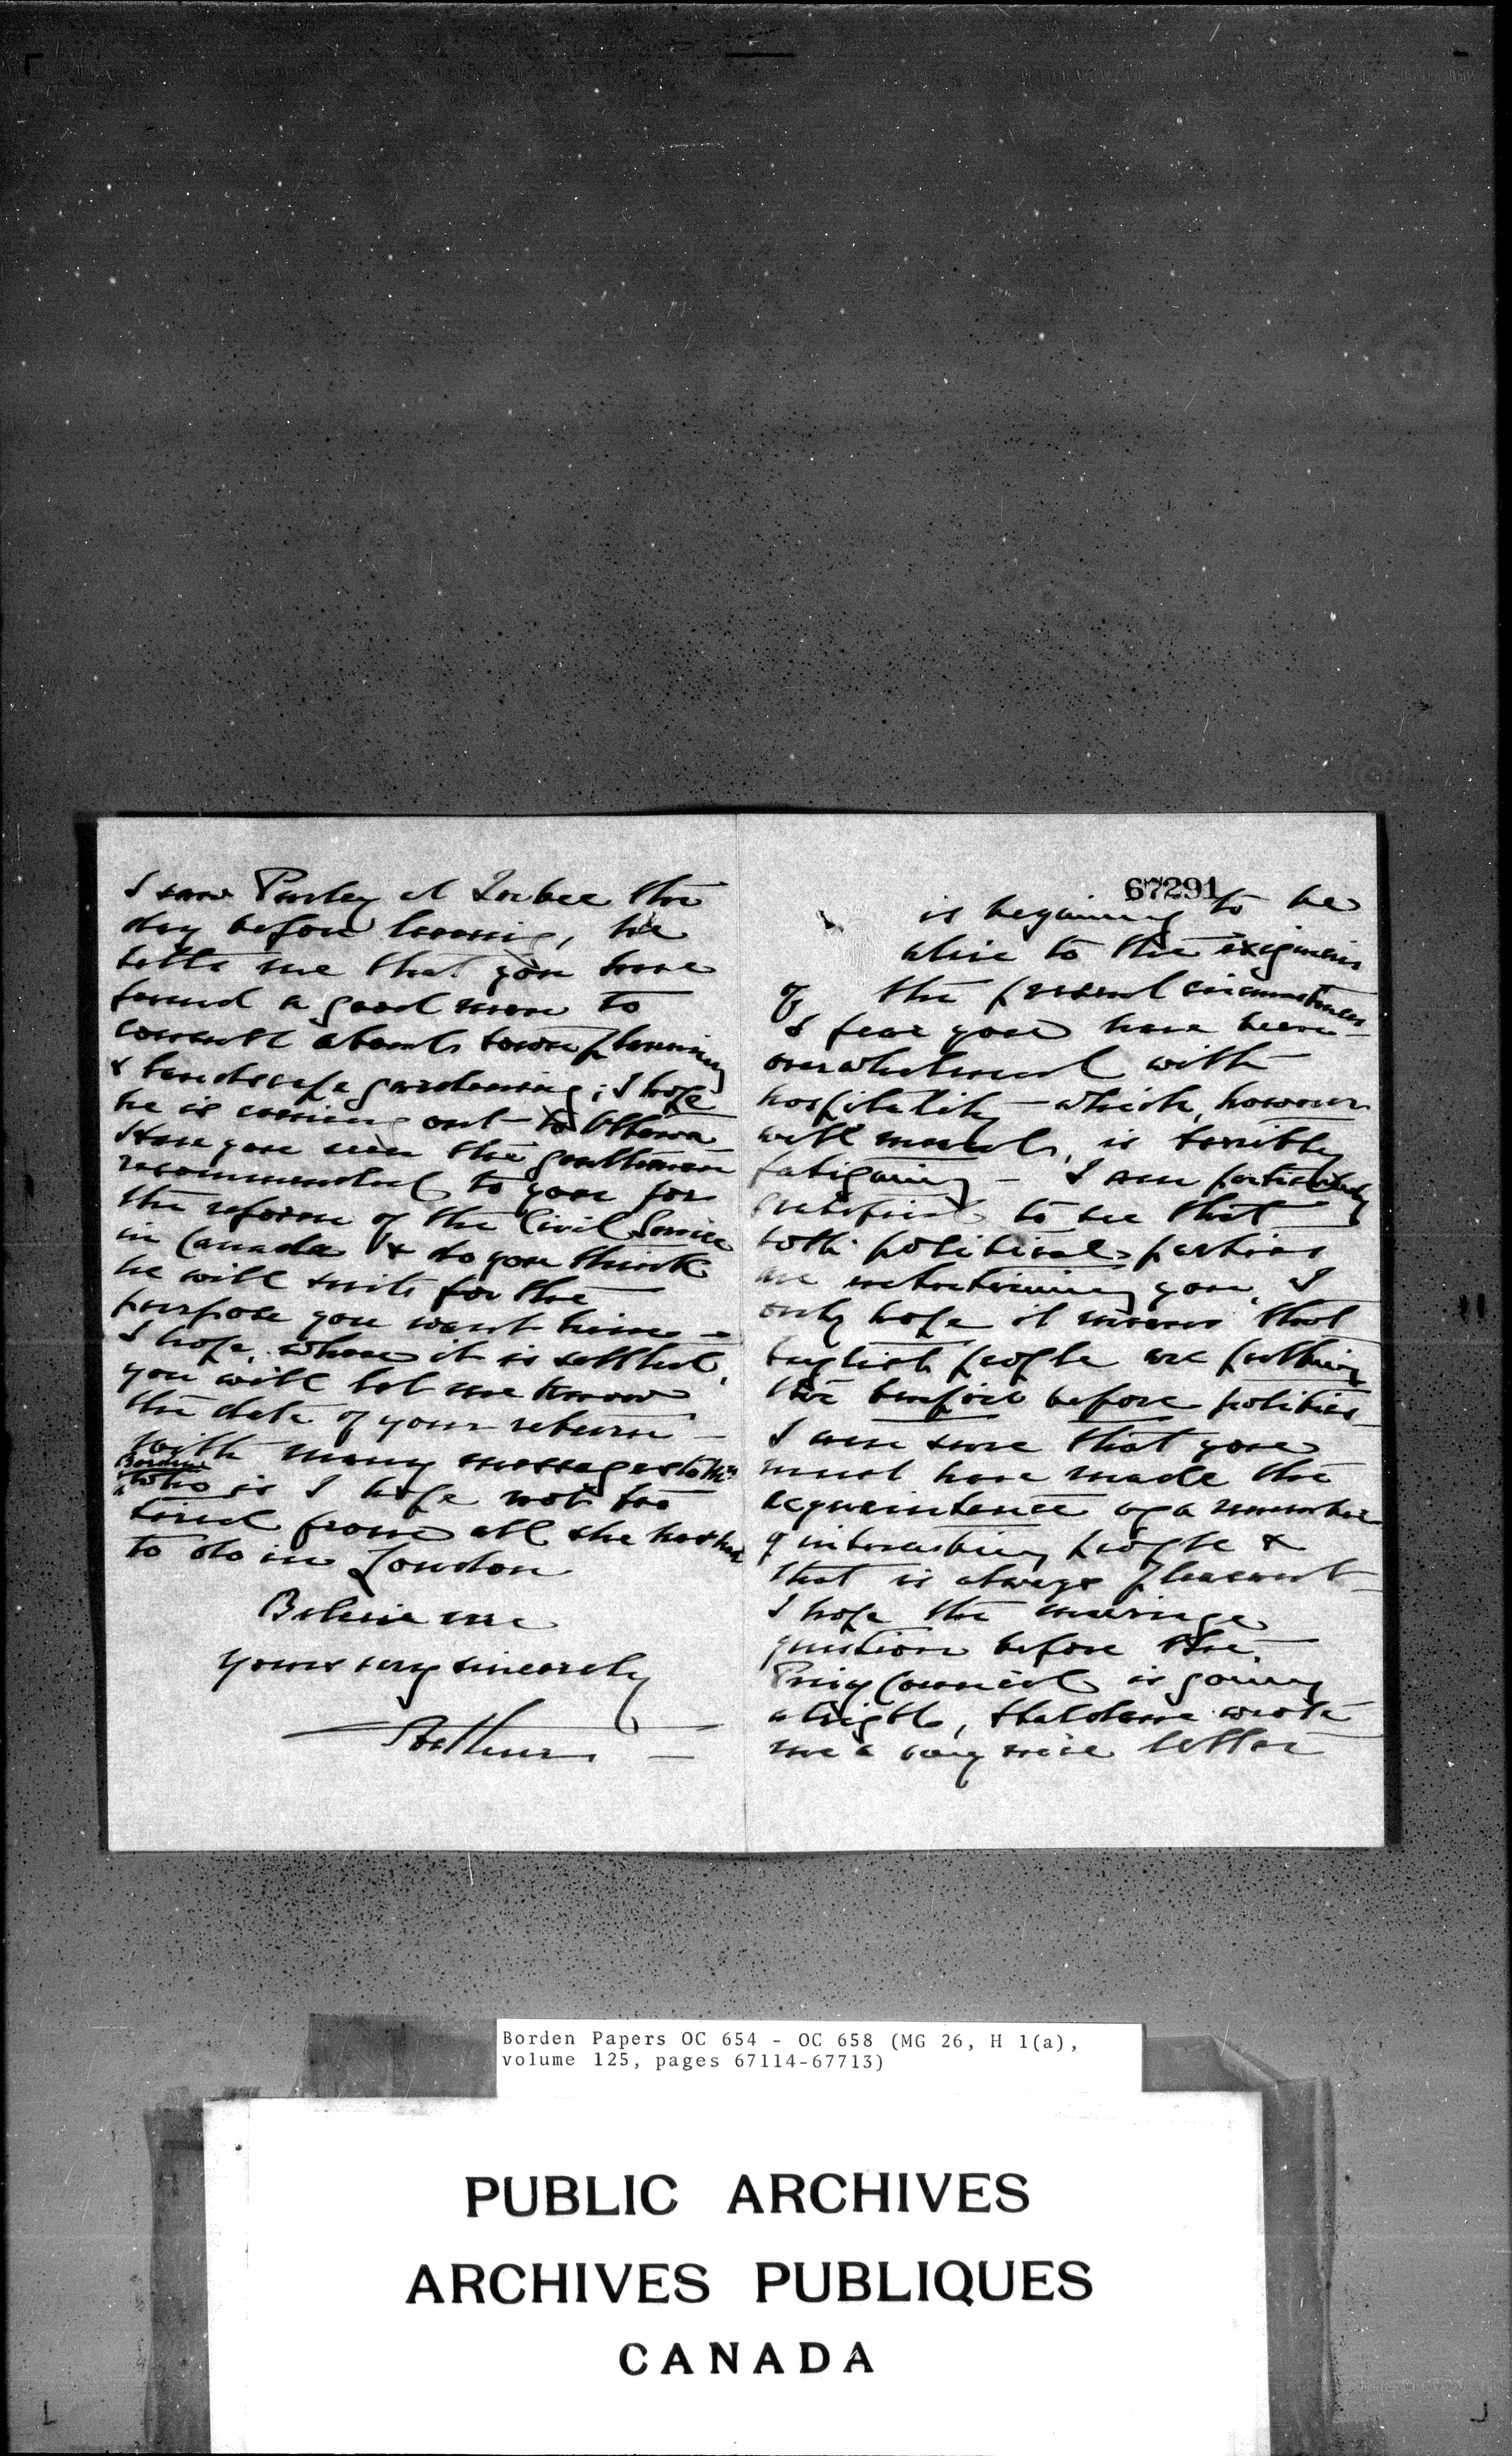 I saw Perley at Quebec the
day before leaving, he
tells me that you have
found a good man to
consult about town planning
& landscape gardening; I hope
he is coming out to Ottawa
Have you seen the gentleman
recommended to you for
the reform of the Civil Service
in Canada & do you think
he will suit for the
purpose you want him -
I hope, when it is settled,
you will let me know
the date of your return -
with many messages to Mrs
Borden
who is I hope not too
tired from all she has had
to do in London
Believe me
yours very sincerely
Arthur
67291
is beginning to be
alive to the exigencies
of the present circumstances
I fear you have been
overwhelmed with
hospitality - which, however
well meant, is terribly
fatiguing - I am particularly
gratified to see that
both political parties
are entertaining you, I
only hope it means that
English people are putting
the Empire before politics
I am sure that you
must have made the
acquaintance of a number
of interesting people &
that is always pleasant -
I hope the marriage
question before the
Privy Council is going
alright, Haldane wrote
me a very nice letter
Borden Papers OC 654 - OC 658 (MG 26, H 1(a),
volume 125, pages 67114-67713)
PUBLIC ARCHIVES
ARCHIVES PUBLIQUES
CANADA